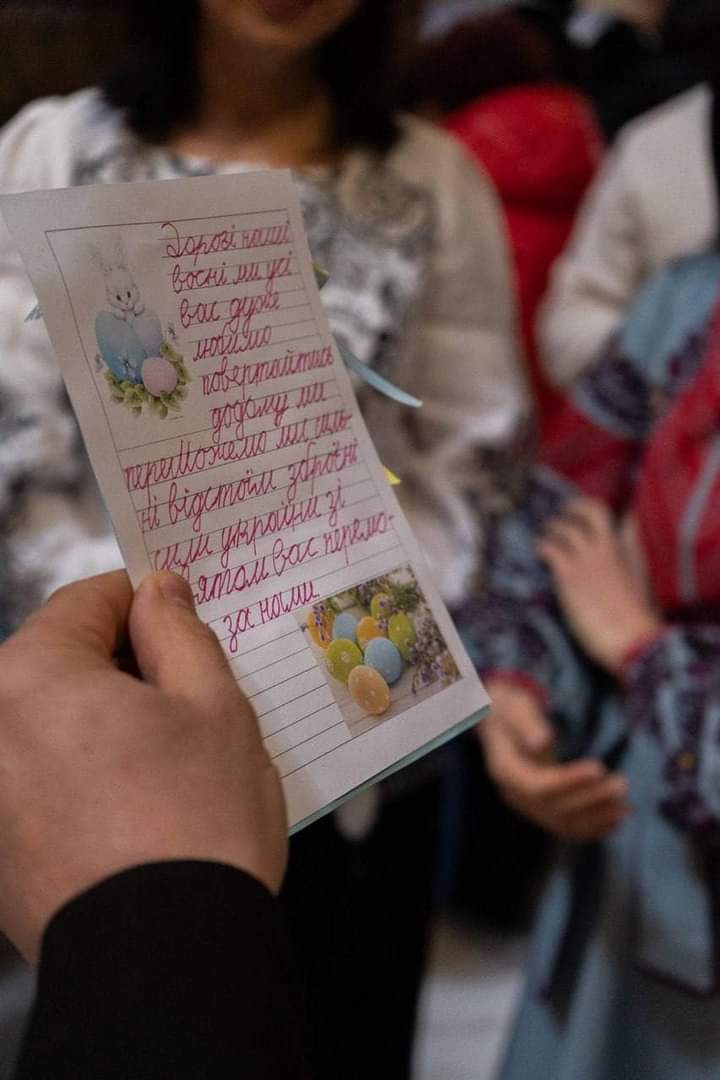 Дорогі наші
воєні ми усі
вас дуже
любимо
повертайтись
додому ми
переможемо ми силь-
ні відстоїм зброєні
сили україни зі
святом вас перемо-
за нами.